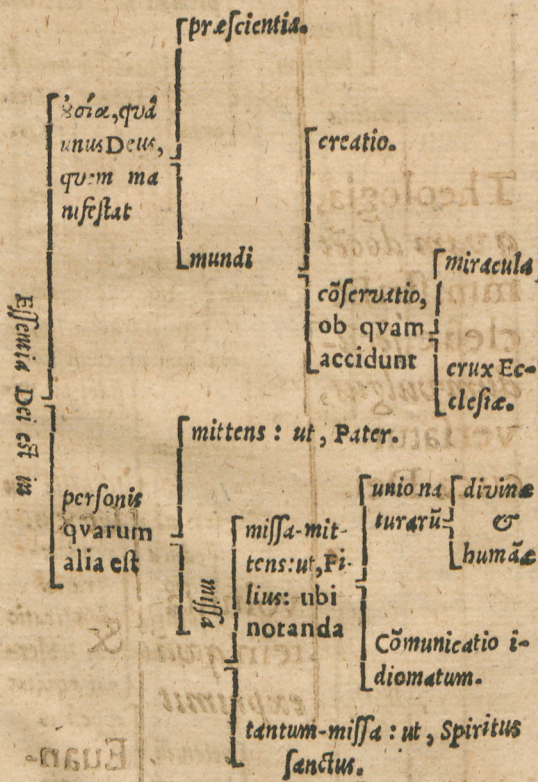 Essentia Dei est in
ȣσία, qvâ
unus Deus,
quem ma
nifestat
præscientia.
mundi
creatio.
cõservatio,
ob qvam
accidunt
miracula,
crux Ec-
clesiæ.
personis
qvarum
alia est
mittens : ut, Pater.
missa
missa-mit-
tens: ut, Fi-
lius: ubi
notanda
unio na
turarũ
divinæ
&
humãæ
Cõmunicatio i-
diomatum.
tantum-missa : ut, Spiritus
sanctus.